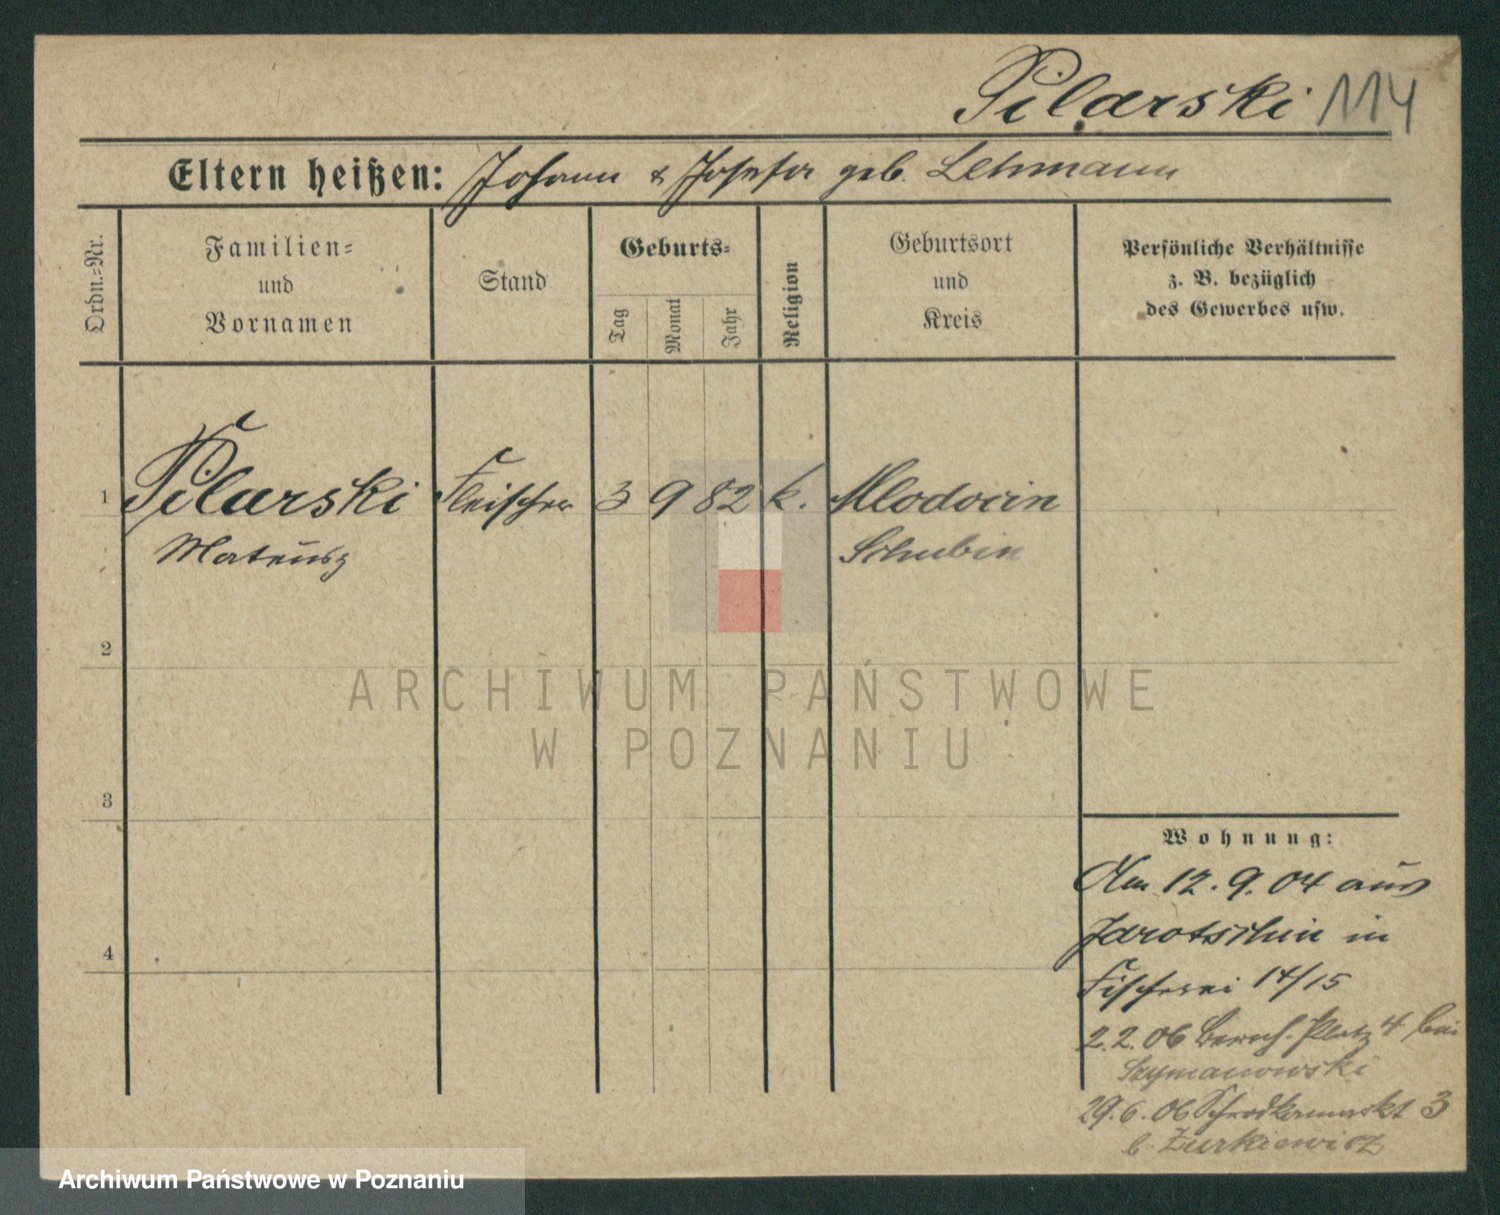 Pilarski 114
Eltern heißen: Johann & Josefa geb. Lehmann
Ordn.=Nr.
Familien=
und
Vornamen
Stand
Geburts=
Tag
Monat
Jahr
Religion
Geburtsort
und
Kreis
Persönliche Verhältnisse
z. B. bezüglich
des Gewerbes usw.
1 Pilarski Fleischer 3 9 82 k. Mlodocin
Mateusz Schubin
2
3
4
Wohnung:
Am 12. 9. 04 aus
Jarotschin in
Fischerei 14/15
2. 2. 06 Bernh. Platz 4 bei
Szymanowski
29. 6. 06 Schrodkamarkt 3
b. Zurkiewicz
ARCHIWUM PAŃSTWOWE
W POZNANIU
Archiwum Państwowe w Poznaniu